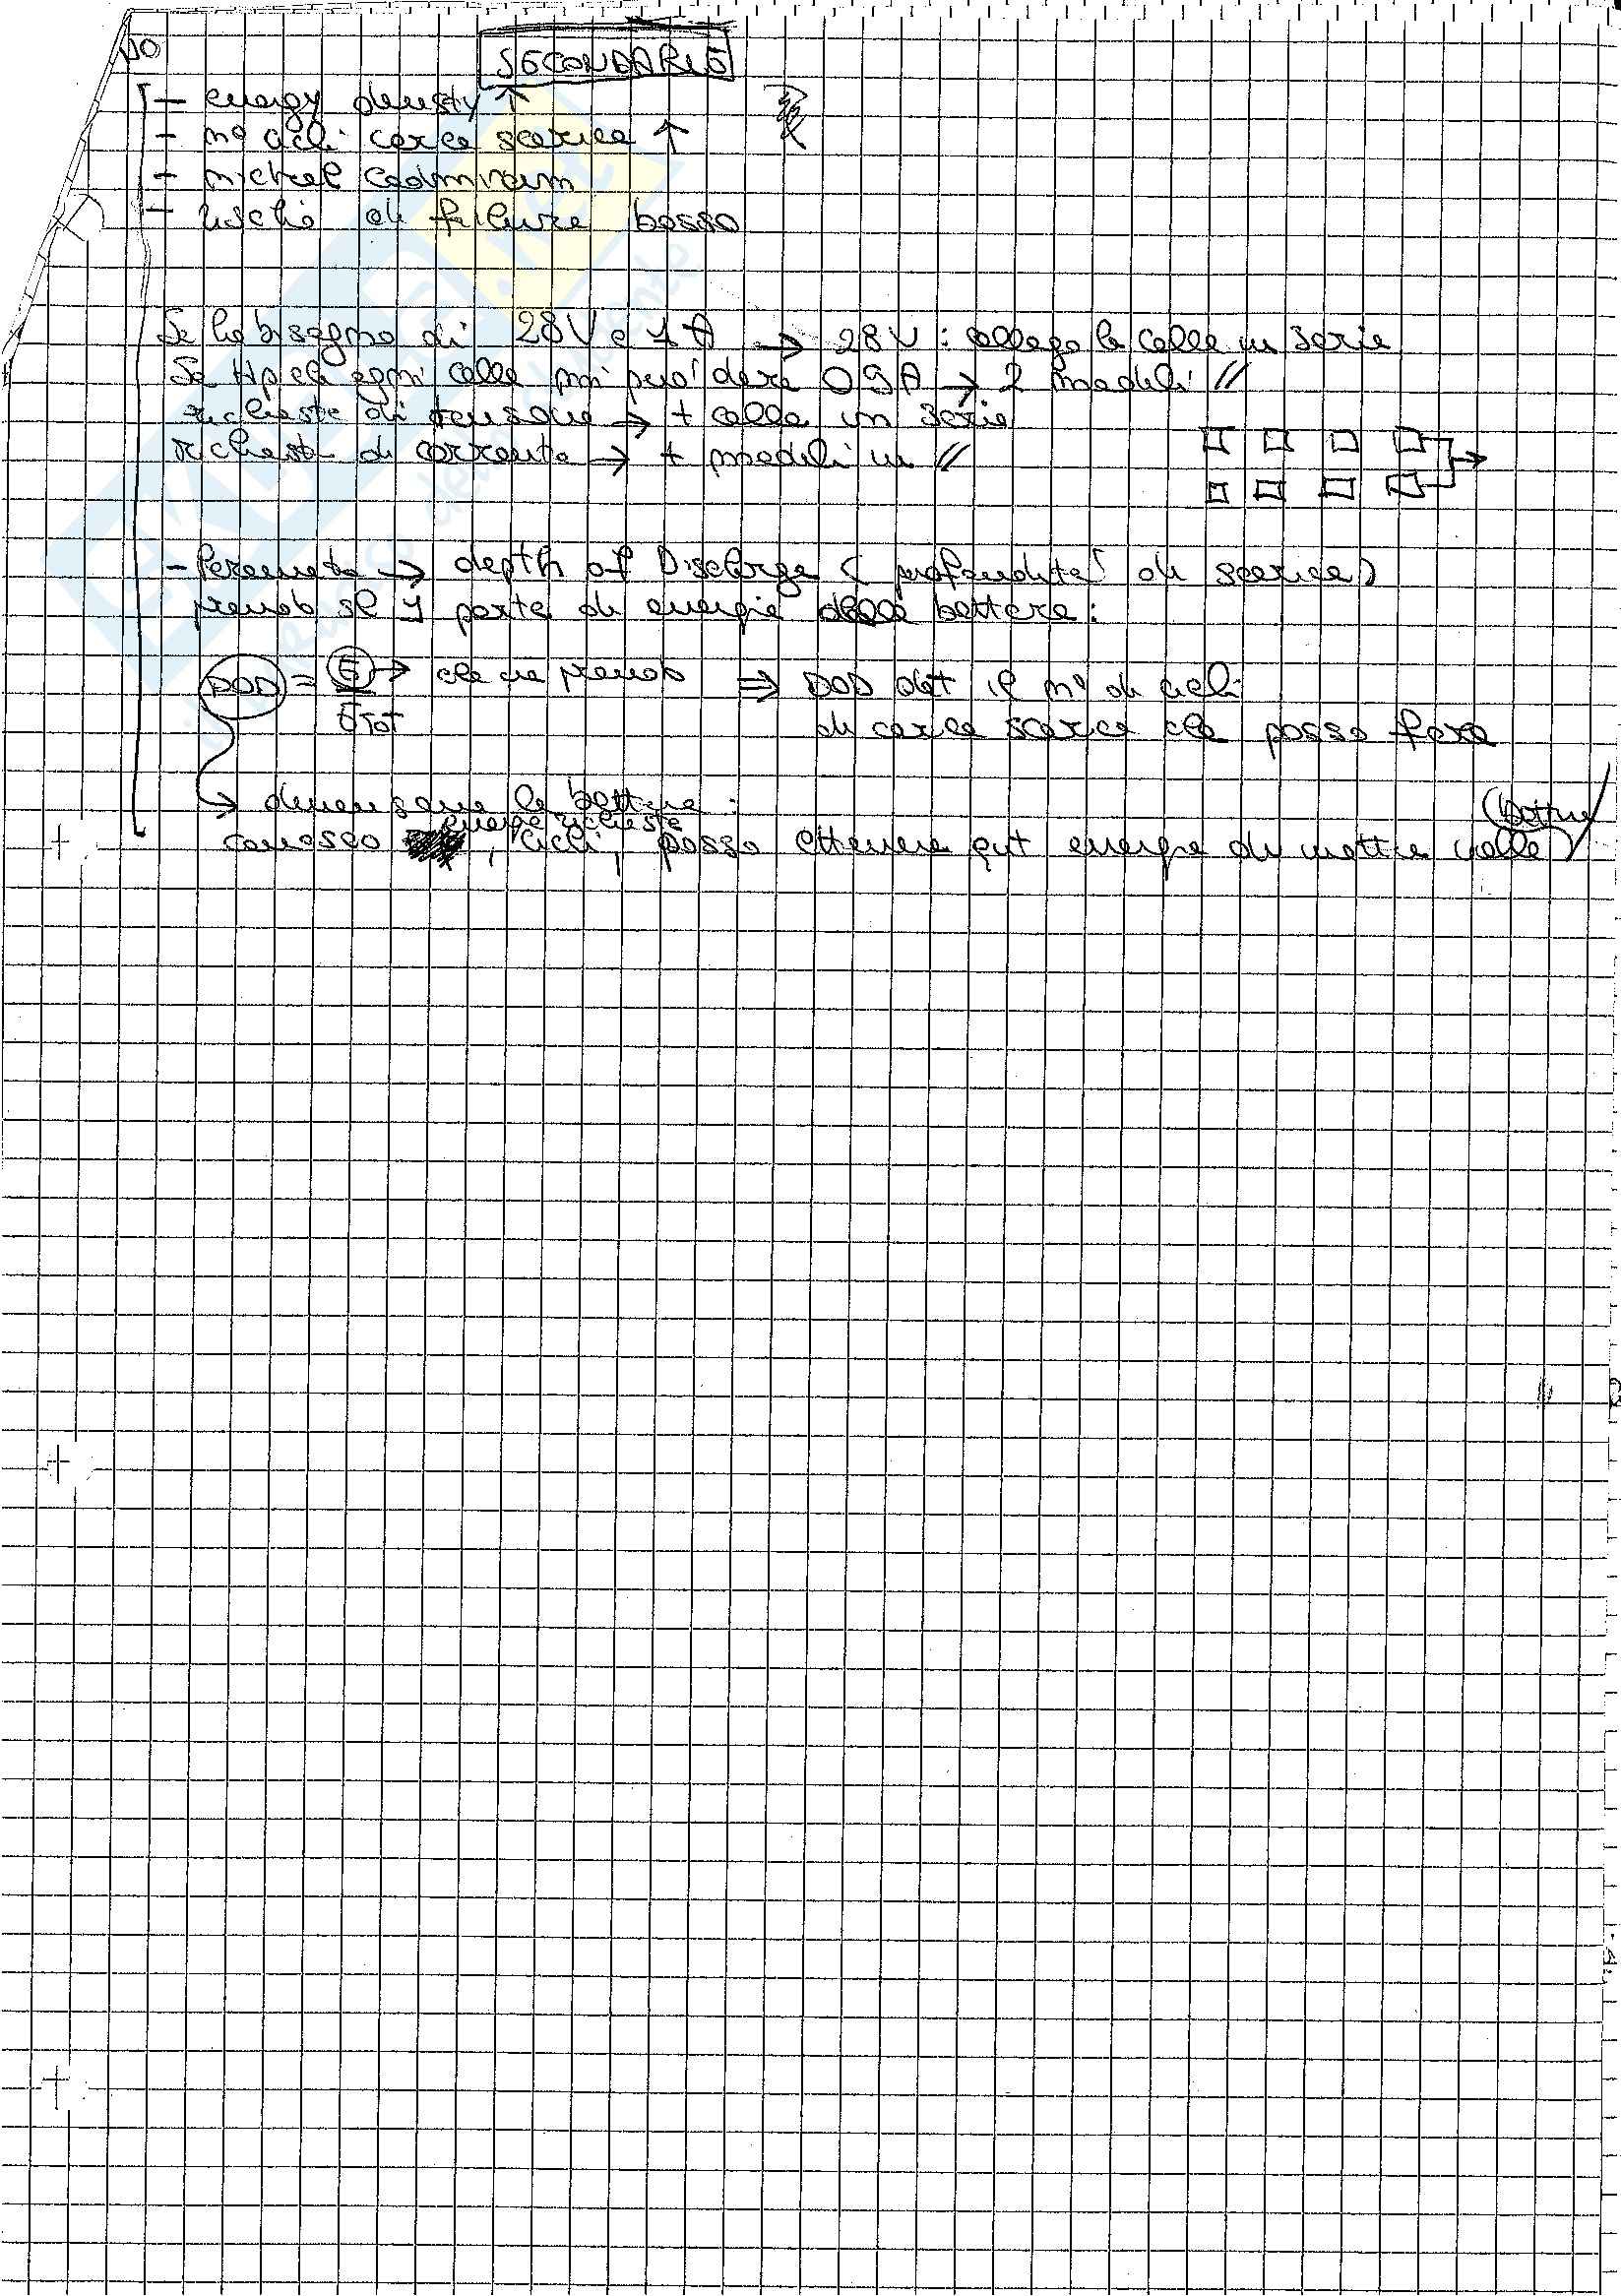 10
SECONDARIE
- energy density ↑
- n° cicli carica scarica ↑
- nichel cadmium
- rischio di failure basso
Se ho bisogno di 28V e 1A → 28V: collego le celle in serie
Se Hp che ogni cella mi può dare 0.5A → 2 moduli //
richiesta di tensione → + celle in serie
richiesta di corrente → + moduli in //
- Parametro → depth of Discharge (profondità di scarica)
prendo sl 1 parte di energia delle batterie:
DOD = E/ETOT → che ne prendo ⇒ DOD det il n° di cicli
di carica scarica che posso fare
→ dimensiono le batterie:
energia richiesta (batterie)
conosco , cicli, posso ottenere qut energia di mettere